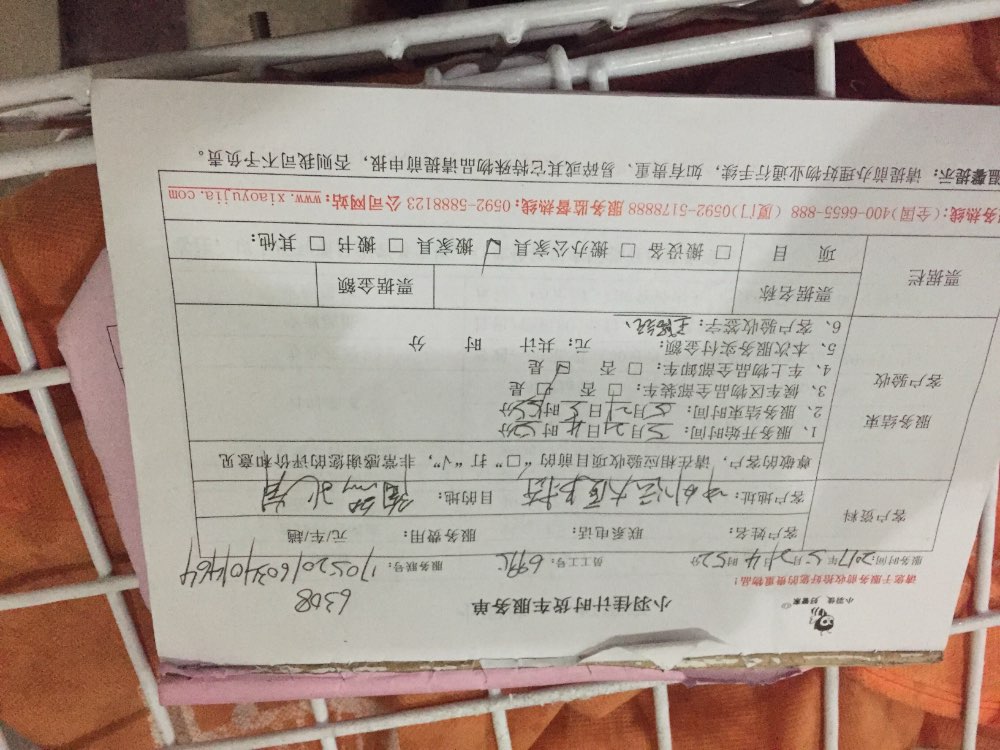 小羽佳 好管家
小羽佳计时货车服务单
6308
请您于服务前收拾好您的贵重物品!
服务时间:2017年5月21日14时52分 员工号: 服务联号:1705201603401464
客户资料
客户姓名: 联系电话: 服务费用: 元/车/趟
客户地址: 目的地:
服务结束
客户验收
尊敬的客户,请在相应验收项目前的“□”打“√”,非常感谢您的评价和意见
1、服务开始时间: 月21日 时 分
2、服务结束时间: 月21日 时 分
3、候车区物品全部装车:□ 否 □ 是
4、车上物品全部卸车:□ 否 □ 是
5、本次服务实付金额: 元; 共计 时 分
6、客户验收签字:
票据栏
票据名称 票据金额
项 目 □ 搬设备 □ 搬办公家具 □ 搬家具 □ 搬书 □ 其他:
服务热线:(全国)400-6655-888 (厦门)0592-5178888 服务监督热线:0592-5888123 公司网站:www.xiaoyujia.com
温馨提示:请提前办理好物业通行手续,如有贵重、易碎或其它特殊物品请提前申报,否则我司不予负责。